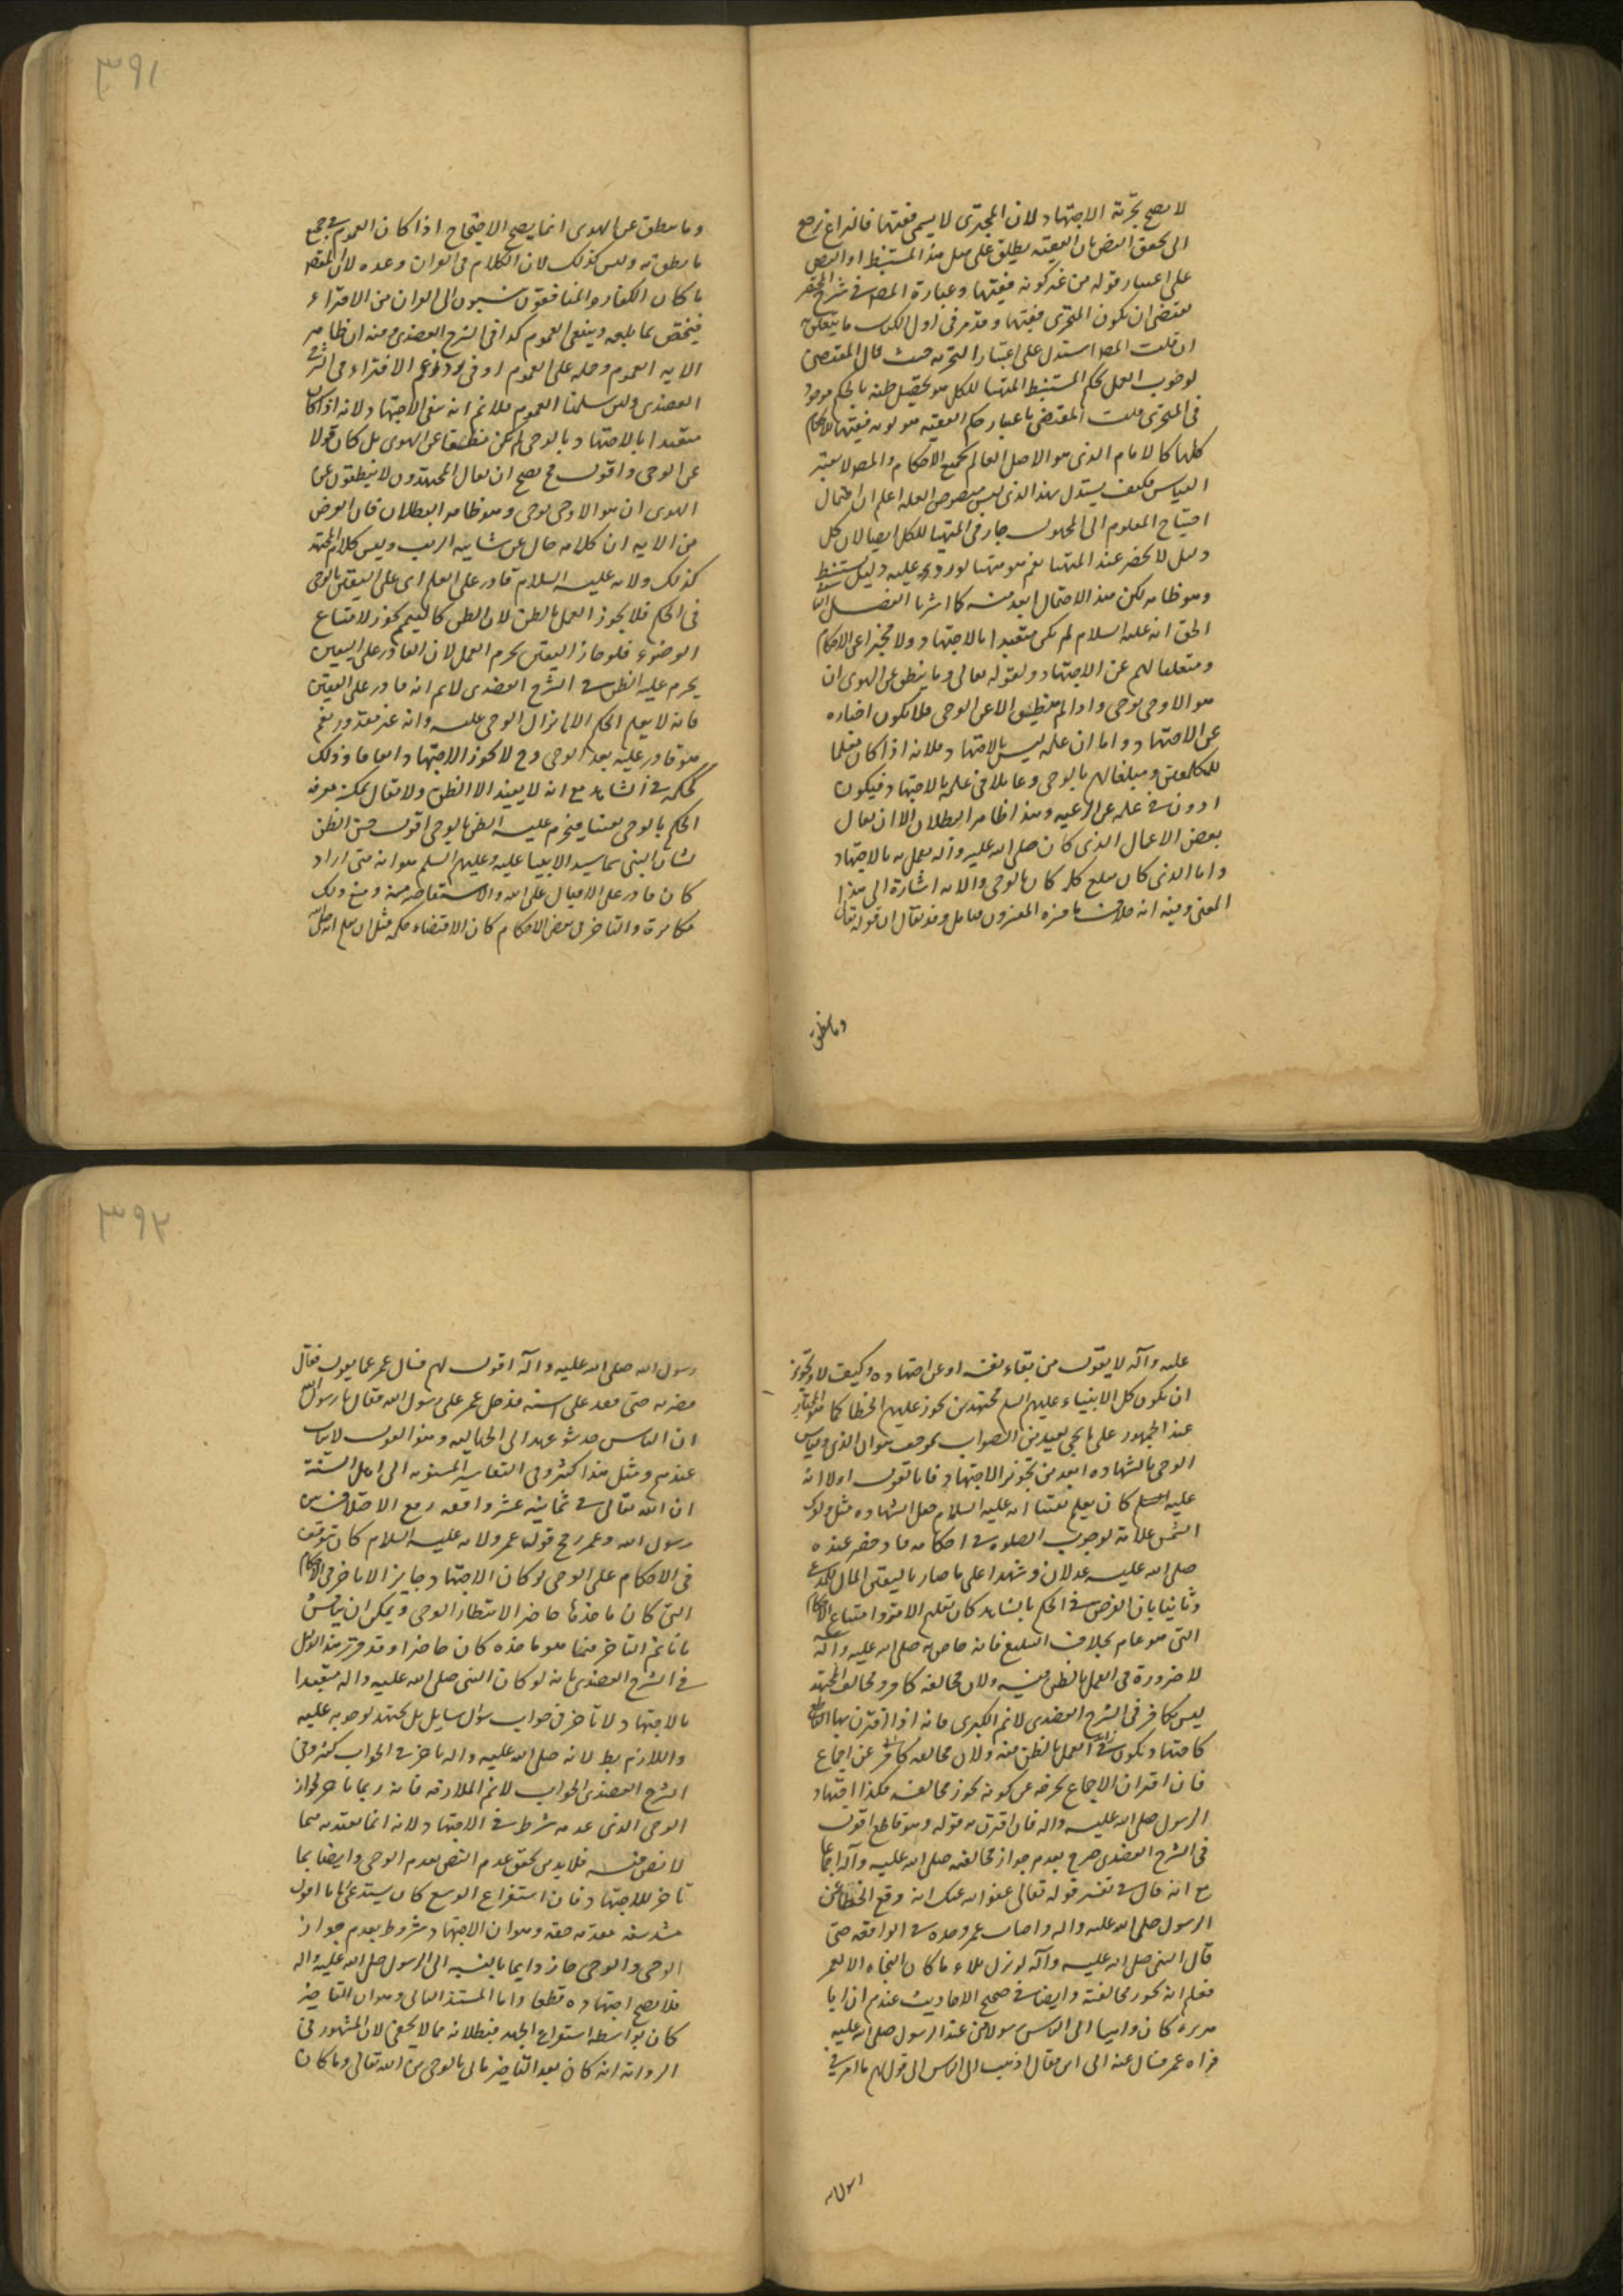 ٣٩١
لا يصح تجزئة الاجتهاد لان المتجزى لا يسمى فقيها فالنزاع يرجع
الى تحقق البعض بان الفقيه يطلق على مثل هذا المستنبط او البعض
على اعتبار قوله من غير كونه فقيها وعبارة المص فى شرح المختصر
يقتضى ان يكون المتجزى فقيها وقد مر فى اول الكتاب ما يتعلق به
ان قلت المص استدل على اعتبار التجزيه حيث قال المقتضى
لوجوب العمل بحكم المستنبط المتهيا للكل هو تحصيل ظنه بالحكم موجود
فى المتجزى قلت المقتضى باعتبار حكم الفقيه هو كونه فقيها للاحكام
كلها كالامام الذى هو الاصل العالم بجميع الاحكام والمص لا يعتبر
القياس فكيف يستدل بهذا الذى ليس منصوص العلة اعلم ان احتمال
احتياج المعلوم الى المجهول جار فى المتهيا للكل ايضا لان كل
دليل لا يحضر عند المتهيا نعم هو متهيا لوروده عليه وليس مستنبط
وهو ظاهر لكن هذا الاحتمال ابعد منه كما اشرنا الفصل الثانى
الحق انه عليه السلام لم يكن متعبدا بالاجتهاد ولا مخبرا عن الاحكام
ومتعلقا لهم عن الاجتهاد ولقوله تعالى وما ينطق عن الهوى ان
هو الا وحى يوحى واذا لم ينطق الا عن الوحى فلا يكون اخباره
عن الاجتهاد واما ان علمه ليس بالاجتهاد فلانه اذا كان معلما
للمكلفين ومبلغا لهم بالوحى وعاملا فى علمه بالاجتهاد فيكون
ادون فى علمه عن الرعيه وهذا ظاهر البطلان الا ان يقال
بعض الاعمال الذى كان صلى الله عليه وآله يعمل به بالاجتهاد
واما الذى كان يبلغ كله كان بالوحى والاية اشارة الى هذا
المعنى وفيه انه خلاف ما فسره المفسرون فتامل وقد يقال ان قوله تعالى
وما ينطق
وما ينطق عن الهوى انما يصح الاحتجاج اذا كان العموم فى جميع
ما ينطق به وليس كذلك لان الكلام فى القران وعده لان المقصد
ما كان الكفار والمنافقون ينسبون الى القران من الافتراء
فيختص بما بلغه وينفى العموم كذا فى الشرح العضدى وفيه ان ظاهر
الايه العموم وحمله على العموم اوفى برد زعم الافتراء فى الشرح
العضدى ولئن سلمنا العموم فلا نم انه ينفى الاجتهاد لانه اذا كان
متعبدا بالاجتهاد بالوحى لم يكن منطقا عن الهوى بل كان قولا
عن الوحى واقول ح يصح ان يقال المجتهدون لا ينطقون عن
الهوى ان هو الا وحى يوحى وهو ظاهر البطلان فان الغرض
من الايه ان كلامه خال عن شايبه الريب وليس كلام المجتهد
كذلك ولانه عليه السلام قادر على العلم اى على اليقين بالوحى
فى الحكم فلا يجوز العمل بالظن لان الظن كالتيمم يجوز لامتناع
الوضوء فلو جاز اليقين يحرم العمل لان القادر على اليقين
يحرم عليه الظن فى الشرح العضدى لا نم انه قادر على اليقين
فانه لا يعلم الحكم الا بانزال الوحى عليه وانه غير مقدور نعم
هو قادر عليه بعد الوحى وح لا يجوز الاجتهاد اتفاقا وذلك
كحكمه فى الشاهد مع انه لا يفيد الا الظن ولا يقال يمكنه معرفه
الحكم بالوحى يقينا فيحرم عليه الظن بالوحى اقول حسن الظن
بشان النبى سيما سيد الانبيا عليه وعليهم السلم هو انه متى اراد
كان قادر على الاقبال على الله والاستفاضه منه ومنع ذلك
مكابرة والتاخر فى بعض الاحكام كان لاقتضاء حكمه مثل ان يعلم انه صلى الله
٣٩٢
عليه وآله لا يقول من تلقاء نفسه او عن اجتهاده وكيف لا وتجويز
ان يكون كل الانبياء عليهم السلم مجتهدين يجوز عليهم الخطا كما هو المختار
عند الجمهور على ما يجى بعيد من الصواب بموضع هو ان الذى وقياس
الوحى بالشهاده ابعد من تجويز الاجتهاد فانا نقول اولا انه
عليه السلم كان يعلم يقينا انه عليه السلام جعل الشهاده مثل دلوك
الشمس علامة لوجوب الصلوة فى احكامه فاذا حضر عنده
صلى الله عليه عدلان وشهدا على ما صار باليقين المال للمدعى
وثانيا بان الغرض فى الحكم بالشاهد كان تعليم الامه واتباع الاحكام
التى هو عام بخلاف التبليغ فانه خاص به صلى الله عليه وآله
لا ضرورة فى العمل بالظن فيه ولان مخالفه كافر ومخالف المجتهد
ليس بكافر فى الشرح العضدى لا نم الكبرى فانه اذا اقترن بها القاطع
كاجتهاد يكون العمل بالظن فيه ولان مخالفه كافر عن اجماع
فان اقتران الاجماع يخرجه عن كونه يجوز مخالفته فكذا اجتهاد
الرسول صلى الله عليه واله فان اقترن به قوله وهو قاطع اقول
فى الشرح العضدى صرح بعدم جواز مخالفته صلى الله عليه وآله اجماعا
مع انه قال فى تفسير قوله تعالى عفى الله عنك انه وقع الخطا عن
الرسول صلى الله عليه واله واصاب عمر وحده فى الواقعه حتى
قال النبى صلى الله عليه وآله لو نزل بلاء ما كان النجاه الا لعمر
فعلم انه يجوز مخالفته وايضا فى صحيح الاحاديث عندهم ان ابا
هريره كان ذاهبا الى الناس رسولا من عند الرسول صلى الله عليه
فراه عمر فسال عنه الى اين فقال اذهب الى الناس الى قول لهم ما امر فى
رسول الله
رسول الله صلى الله عليه وآله اقول لهم فسال عمر عما يقول فقال
فضربه حتى قعد على استه فدخل عمر على رسول الله فقال يا رسول الله
ان الناس حديثو عهد الى الجاهليه وهذا القول لا يناسب
عندهم ومثل هذا كثير وفى التفاسير المنسوبه الى اهل السنة
ان الله تعالى فى ثمانيه عشر واقعه رفع الاختلاف بين
رسول الله وعمر رجح قول عمر ولانه عليه السلام كان يتوقف
فى الاحكام على الوحى لو كان الاجتهاد جايز الا تاخر فى الاحكام
التى كان ماخذها حاضر الانتظار الوحى ويمكن ان يناقش
بانا نمنع التاخر فيما هو ماخذه كان حاضرا وقد قرر هذا الدليل
فى الشرح العضدى بانه لو كان النبى صلى الله عليه واله متعبدا
بالاجتهاد لا تاخر فى جواب سؤال سايل بل يجتهد لوجوبه عليه
واللازم بط لانه صلى الله عليه واله تاخر فى الجواب كثيرا وفى
الشرح العضدى الجواب لا نم الملازمه فانه ربما تاخر لجواز
الوحى الذى عدمه شرط فى الاجتهاد لانه انما يتعبد به فيما
لا نص فيه فلا بد من تحقق عدم النص بعدم الوحى وايضا بما
تاخر للاجتهاد فان استفراغ الوسع كان يستدعى زمانا اقول
مقدمه حقه وهو ان الاجتهاد مشروط بعدم جواز
الوحى والوحى جاز دايما بالنسبه الى الرسول صلى الله عليه واله
فلا يصح اجتهاده قطعا واما المستند الثانى وهو ان التاخير
كان بواسطه استفراغ الجهد فبطلانه مما لا يخفى لان المشهور فى
الروايه انه كان بعد التاخير ياتى بالوحى من الله تعالى وما كان